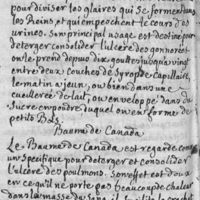 pour diviser les glaires qui se forment dans
les Reins et qui empeschent le cours des
urines. Son principal usage est destiné pour
deterger consolider l'ulcere des gonnorées
on le prend depuis dix gouttes jusqu'a vingt
entre deux couches de Syrop de Capillaire,
le matin a jeun, ou bien dans une
cueillerée de lait, ou envelopé dans du
Sucre en poudre auquel on en forme de
petits Bols.
Baume de Canada
Le Baume de Canada est regardé comme
un Specifique pour deterger et consolider
l'ulcere des poulmons. Son effet est doux
en ce qu'il ne porte pas beaucoup de chaleur
dans la masse du Sang, il